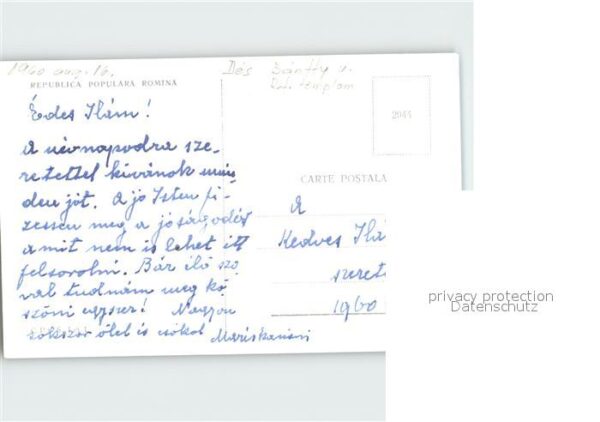 1960 aug. 16.
Dés Bánffy u.
ref. templom
REPUBLICA POPULARA ROMINA
2044
Édes Ilám!
A névnapodra sze-
retettel kívánok min-
den jót. A jó Isten fi-
zessen meg a jóságodért
amit nem is lehet itt
felsorolni. Bár illő szó
val tudnám meg kö
szöni egyszer! Nagyon
sokszor ölel és csókol Mariskanéni
CARTE POSTALA
A
Kedves Ila
szeret
1960
privacy protection
Datenschutz